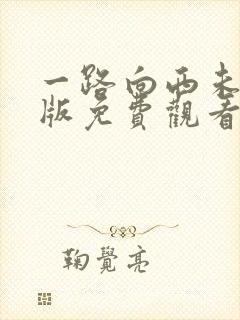 一路向西未
版免費觀看
鞠覺亮